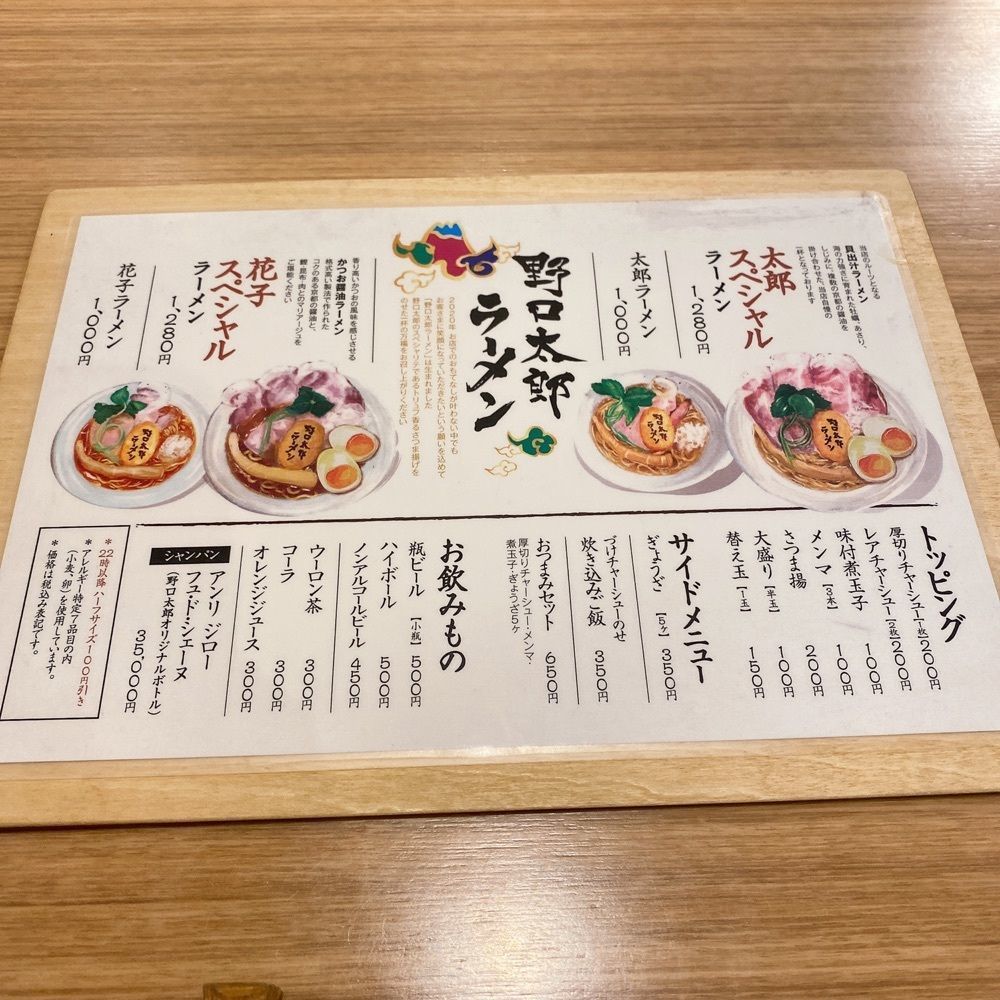 野口太郎
ラーメン
2020年 お店でのおもてなしが叶わない中でも
お客さまに笑顔になっていただきたいという願いを込めて
「野口太郎ラーメン」は生まれました
野口太郎のスペシャリテであるトリュフ香るさつま揚げを
のせた一杯の万福をお召し上がりください
当店のルーツとなる
貝出汁ラーメン
海の力強さに育まれた牡蠣、あさり、
しじみに、複数の京都の醤油を
掛け合わせた、当店自慢の
一杯となっております
太郎
スペシャル
ラーメン
1,280円
太郎ラーメン
1,000円
香り高いかつおの風味を感じさせる
かつお醤油ラーメン
格式高い製法で作られた
コクのある京都の醤油と、
鰹・昆布・肉とのマリアージュを
ご堪能ください
花子
スペシャル
ラーメン
1,280円
花子ラーメン
1,000円
野口太郎
ラーメン
野口太郎
ラーメン
野口太郎
ラーメン
野口太郎
ラーメン
トッピング
厚切りチャーシュー【1枚】200円
レアチャーシュー【2枚】200円
味付煮玉子 100円
メンマ【3本】100円
さつま揚 200円
大盛り【半玉】100円
替え玉【一玉】150円
サイドメニュー
ぎょうざ【5ヶ】350円
づけチャーシューのせ
炊き込みご飯 350円
おつまみセット 650円
厚切りチャーシュー・メンマ・
煮玉子・ぎょうざ5ヶ
お飲みもの
瓶ビール【小瓶】500円
ハイボール 500円
ノンアルコールビール 450円
ウーロン茶 300円
コーラ 300円
オレンジジュース 300円
シャンパン
アンリ ジロー
フュ・ド・シェーヌ
(野口太郎オリジナルボトル)
35,000円
*22時以降ハーフサイズ100円引き
*アレルギー特定7品目の内
(小麦、卵)を使用しています。
*価格は税込み表記です。